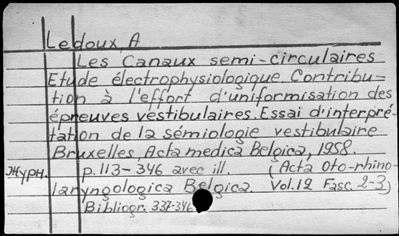 Ledoux, A
Les Canaux semi-circulaires
Etude électrophysiologique. Contribu=
tion à l'effort d'uniformisation des
épreuves vestibulaires. Essai d'interpré-
tation de la sémiologie vestibulaire
Bruxelles, Acta medica Belgica, 1958.
Hyph. p. 113-346 avec ill. (Acta Oto-rhino-
laryngologica Belgica. Vol. 12 Fasc. 2-3)
Bibliogr. 337-346.